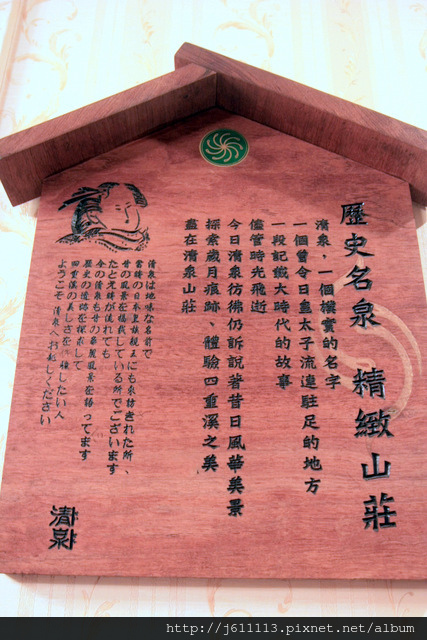 歷史名泉 精緻山莊
清泉，一個樸實的名字
一個曾令日皇太子流連駐足的地方
一段記載大時代的故事
儘管時光飛逝
今日清泉彷彿仍訴說著昔日風華美景
探索歲月痕跡、體驗四重溪之美
盡在清泉山莊
清泉は地味な名前で
當時の日本皇族親王にも来訪された所、
昔の風景を偽載している所でございます
たとえ光時が流れても
今の清泉も昔の華麗風景を語ってます
歷史の遺跡を探求して
四重溪の美しさを 験したい人
ようこそ 清泉へお越しください
清泉
http://j611113.pixnet.net/album